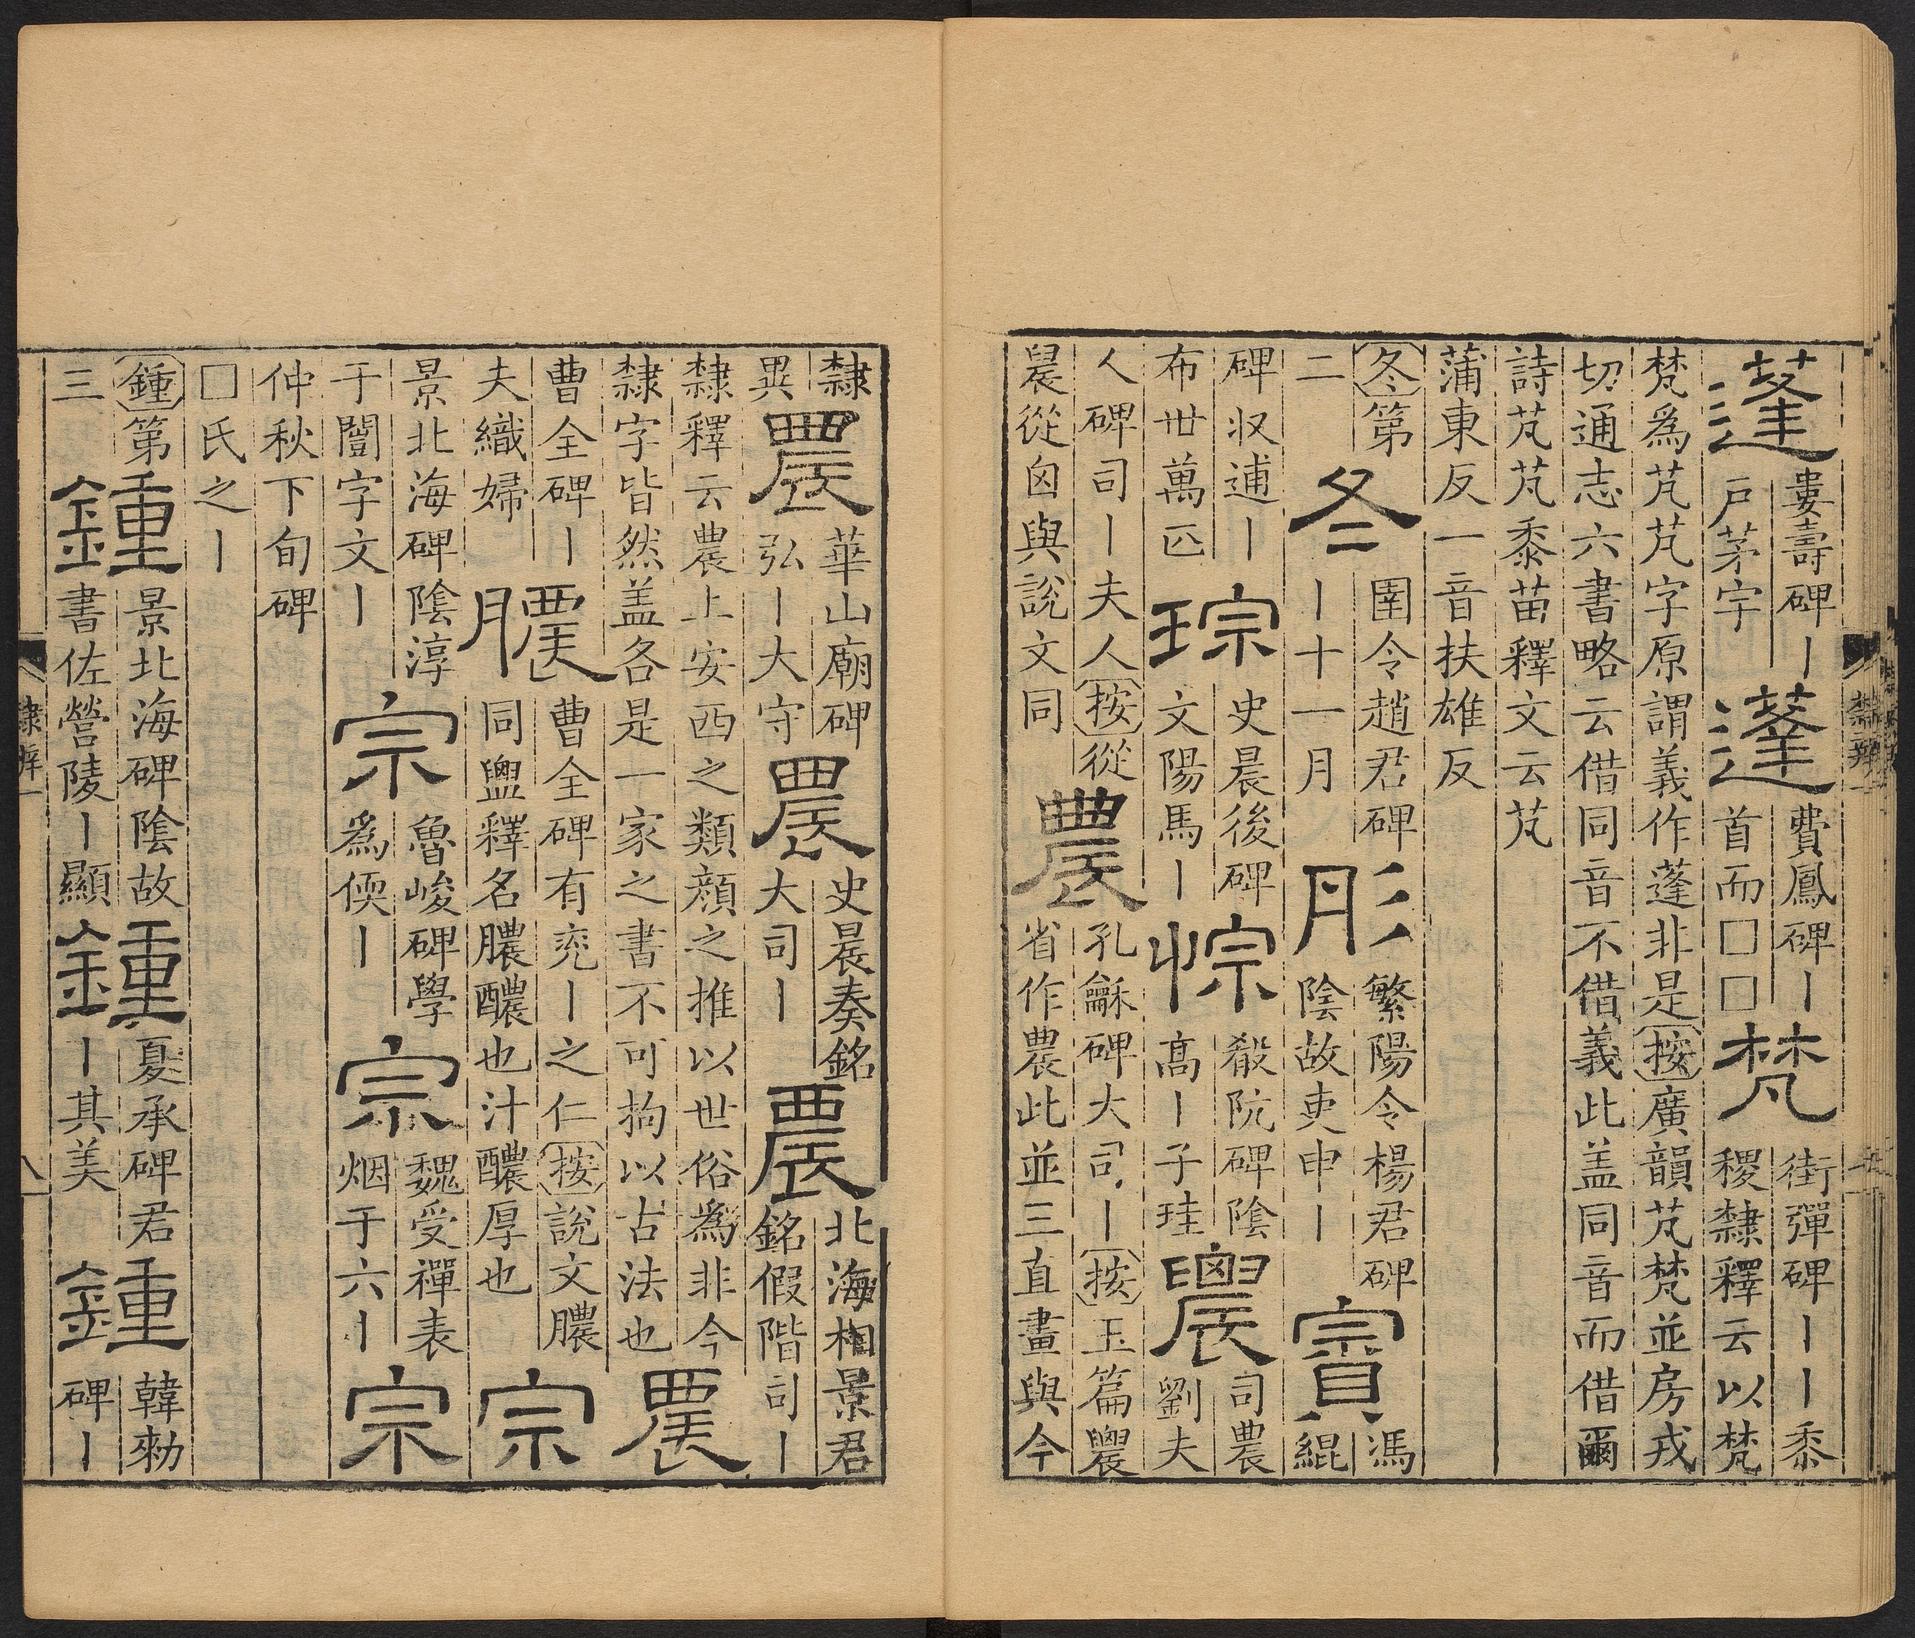 蓬婁壽碑丨戸茅宇蓬費鳳碑丨首而□□梵街彈碑丨丨黍稷隸釋云以梵
梵爲芃芃字原謂義作蓬非是按廣韻芃梵並房戎
切通志六書略云借同音不借義此盖同音而借爾
詩芃芃黍苗釋文云芃
蒲東反一音扶雄反
冬第二冬圉令趙君碑丨十一月彤繁陽令楊君碑陰故吏申丨賨馮緄
碑収逋丨布世萬匹琮史晨後碑文陽馬丨悰殽阬碑陰髙丨子珪農司農劉夫
人碑司丨夫人按從晨從囟與說文同農孔龢碑大司丨按玉篇農省作農此並三直畫與今
隸異農華山廟碑弘丨大守農史晨奏銘大司丨農北海相景君銘假階司丨
隸釋云農上安西之類顔之推以世俗爲非今
隸字皆然盖各是一家之書不可拘以古法也農
曹全碑丨夫織婦膿曹全碑有兖丨之仁按說文膿同盥釋名膿醲也汁醲厚也宗
景北海碑陰淳于誾字文丨宗魯峻碑學爲偄丨宗魏受禪表烟于六丨宗
仲秋下旬碑□氏之丨
鍾第三鍾景北海碑陰故書佐營陵丨顯鍾夏承碑君丨其美鍾韓勑碑丨
隸辨一
八